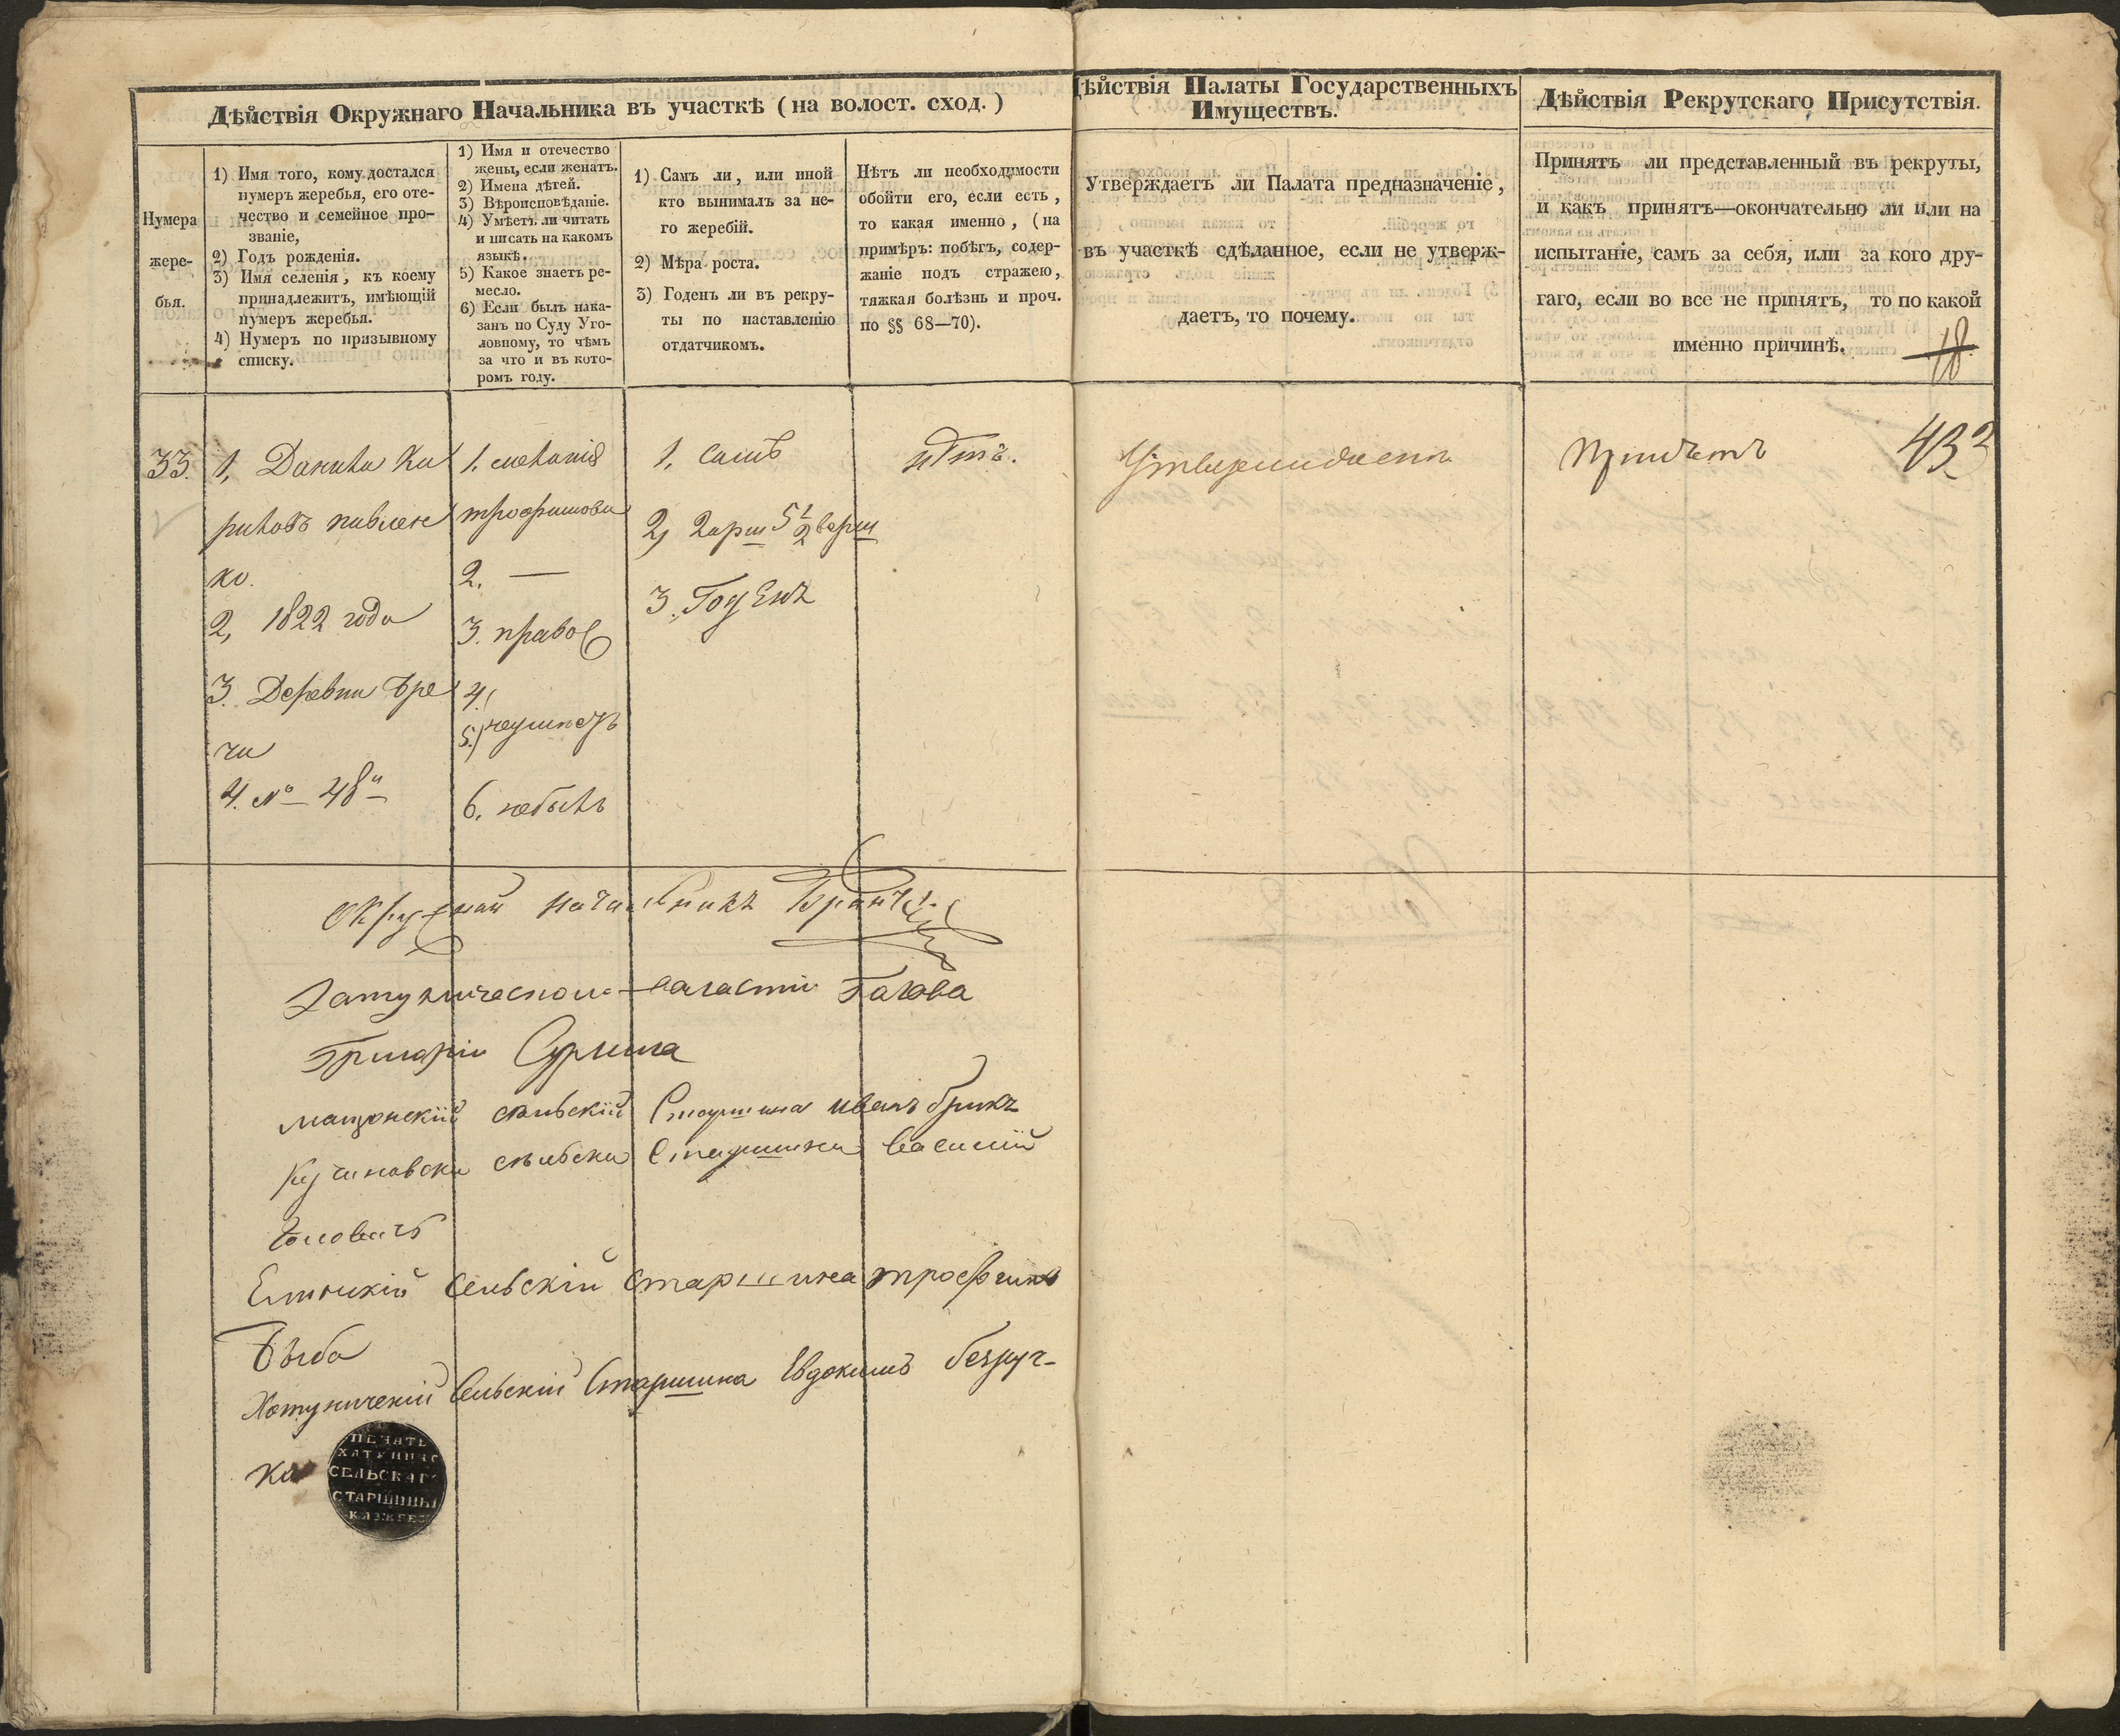 Дѣйствія Окружнаго Начальника въ участкѣ (на волост. сход.)
Нумера
жере-
бья.
1) Имя того, кому достался
нумеръ жеребья, его оте-
чество и семейное про-
званіе,
2) Годъ рожденія.
3) Имя селенія, къ коему
принадлежитъ, имѣющій
нумеръ жеребья.
4) Нумеръ по призывному
списку.
1) Имя и отечество
жены, если женатъ.
2) Имена дѣтей.
3) Вѣроисповѣданіе.
4) Умѣетъ ли читать
и писать на какомъ
языкѣ.
5) Какое знаетъ ре-
месло.
6) Если былъ нака-
занъ по Суду Уго-
ловному, то чѣмъ
за что и въ кото-
ромъ году.
1) Самъ ли, или иной
кто вынималъ за не-
го жеребій.
2) Мѣра роста.
3) Годенъ ли въ рекру-
ты по наставленію
отдатчикомъ.
Нѣтъ ли необходимости
обойти его, если есть,
то какая именно, (на
примѣръ: побѣгъ, содер-
жаніе подъ стражею,
тяжкая болѣзнь и проч.
по §§ 68—70).
33.
1, Данила Ки
риловъ павлен
ко.
2, 1822 года
3. Деревни Бре
чи
4. № 48й
1. меланія
трофимова
2. —
3. право
4.
5. неумѣетъ
6. небылъ
1, самъ
2, 2 арш 5 1/2 верш
3. Годенъ
нѣтъ.
Окружный начальникъ
волости Голова
Григорій
сельскій Старшина иванъ брикъ
сельски Старшина василий
сельскій старшина трофимъ
Хотуничскій Сельскій Старшина Евдокимъ безруч-
ко
ПЕЧАТЬ
ХАТУНИЧС
СЕЛЬСКАГ
СТАРШИНЫ
Дѣйствія Палаты Государственныхъ
Имуществъ.
Утверждаетъ ли Палата предназначеніе,
въ участкѣ сдѣланное, если не утверж-
даетъ, то почему.
Утверждаетъ
Дѣйствія Рекрутскаго Присутствія.
Принятъ ли представленный въ рекруты,
и какъ принятъ—окончательно ли или на
испытаніе, самъ за себя, или за кого дру-
гаго, если во все не принятъ, то по какой
именно причинѣ.
18.
Принятъ